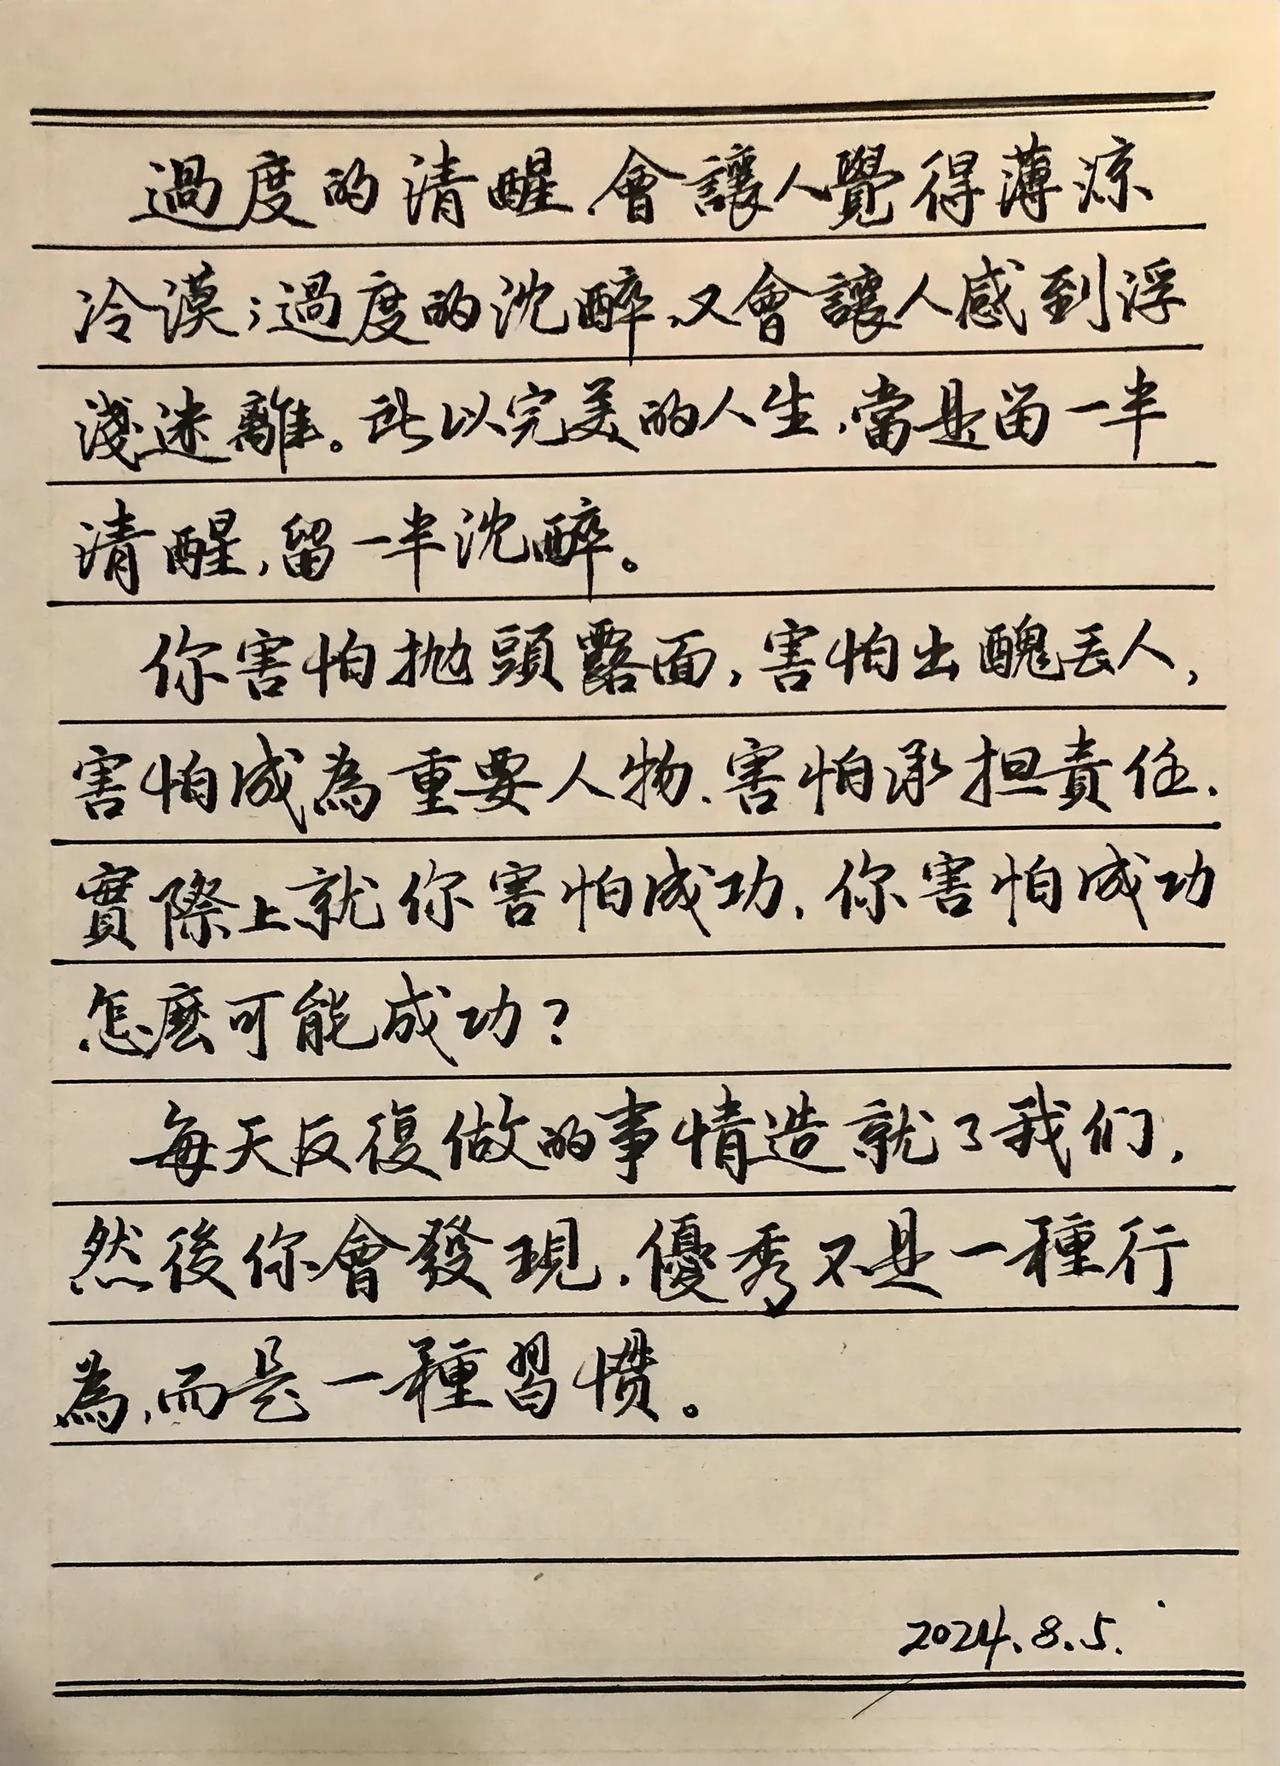 過度的清醒,會讓人覺得薄涼
冷漠;過度的沈醉,又會讓人感到浮
淺迷離。所以完美的人生,當是留一半
清醒,留一半沈醉。
你害怕拋頭露面,害怕出醜丟人,
害怕成為重要人物、害怕承担責任.
實際上就你害怕成功,你害怕成功
怎麼可能成功?
每天反復做的事情造就了我们,
然後你會發現,優秀不是一種行
為,而是一種習慣。
2024.8.5.